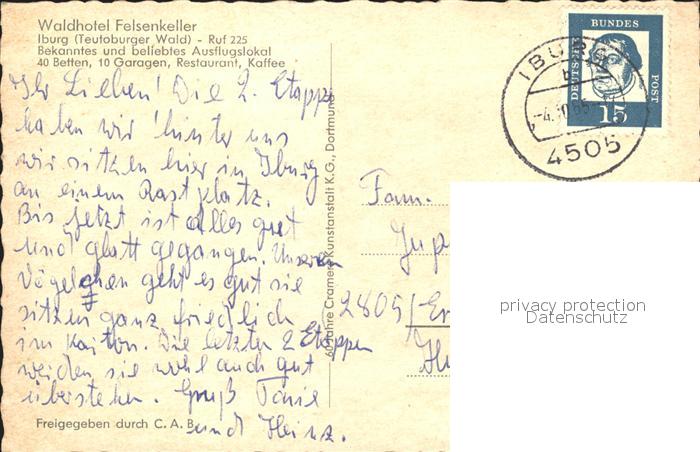 Waldhotel Felsenkeller
Iburg (Teutoburger Wald) - Ruf 225
Bekanntes und beliebtes Ausflugslokal
40 Betten, 10 Garagen, Restaurant, Kaffee
Ihr Lieben! Die 2. Etappe
haben wir hinter uns
wir sitzen hier in Iburg
an einem Rastplatz.
Bis jetzt ist alles gut
und glatt gegangen. Unseren
Vögelchen geht es gut sie
sitzen ganz friedlich
im Karton. Die letzten 2 Etappen
werden sie wohl auch gut
überstehen. Gruß
und Heinz.
Freigegeben durch C. A. B.
60 Jahre Cramers Kunstanstalt K.G., Dortmund
DEUTSCHE
BUNDES
POST
15
IBURG
4505
Fam.
2805/
privacy protection
Datenschutz